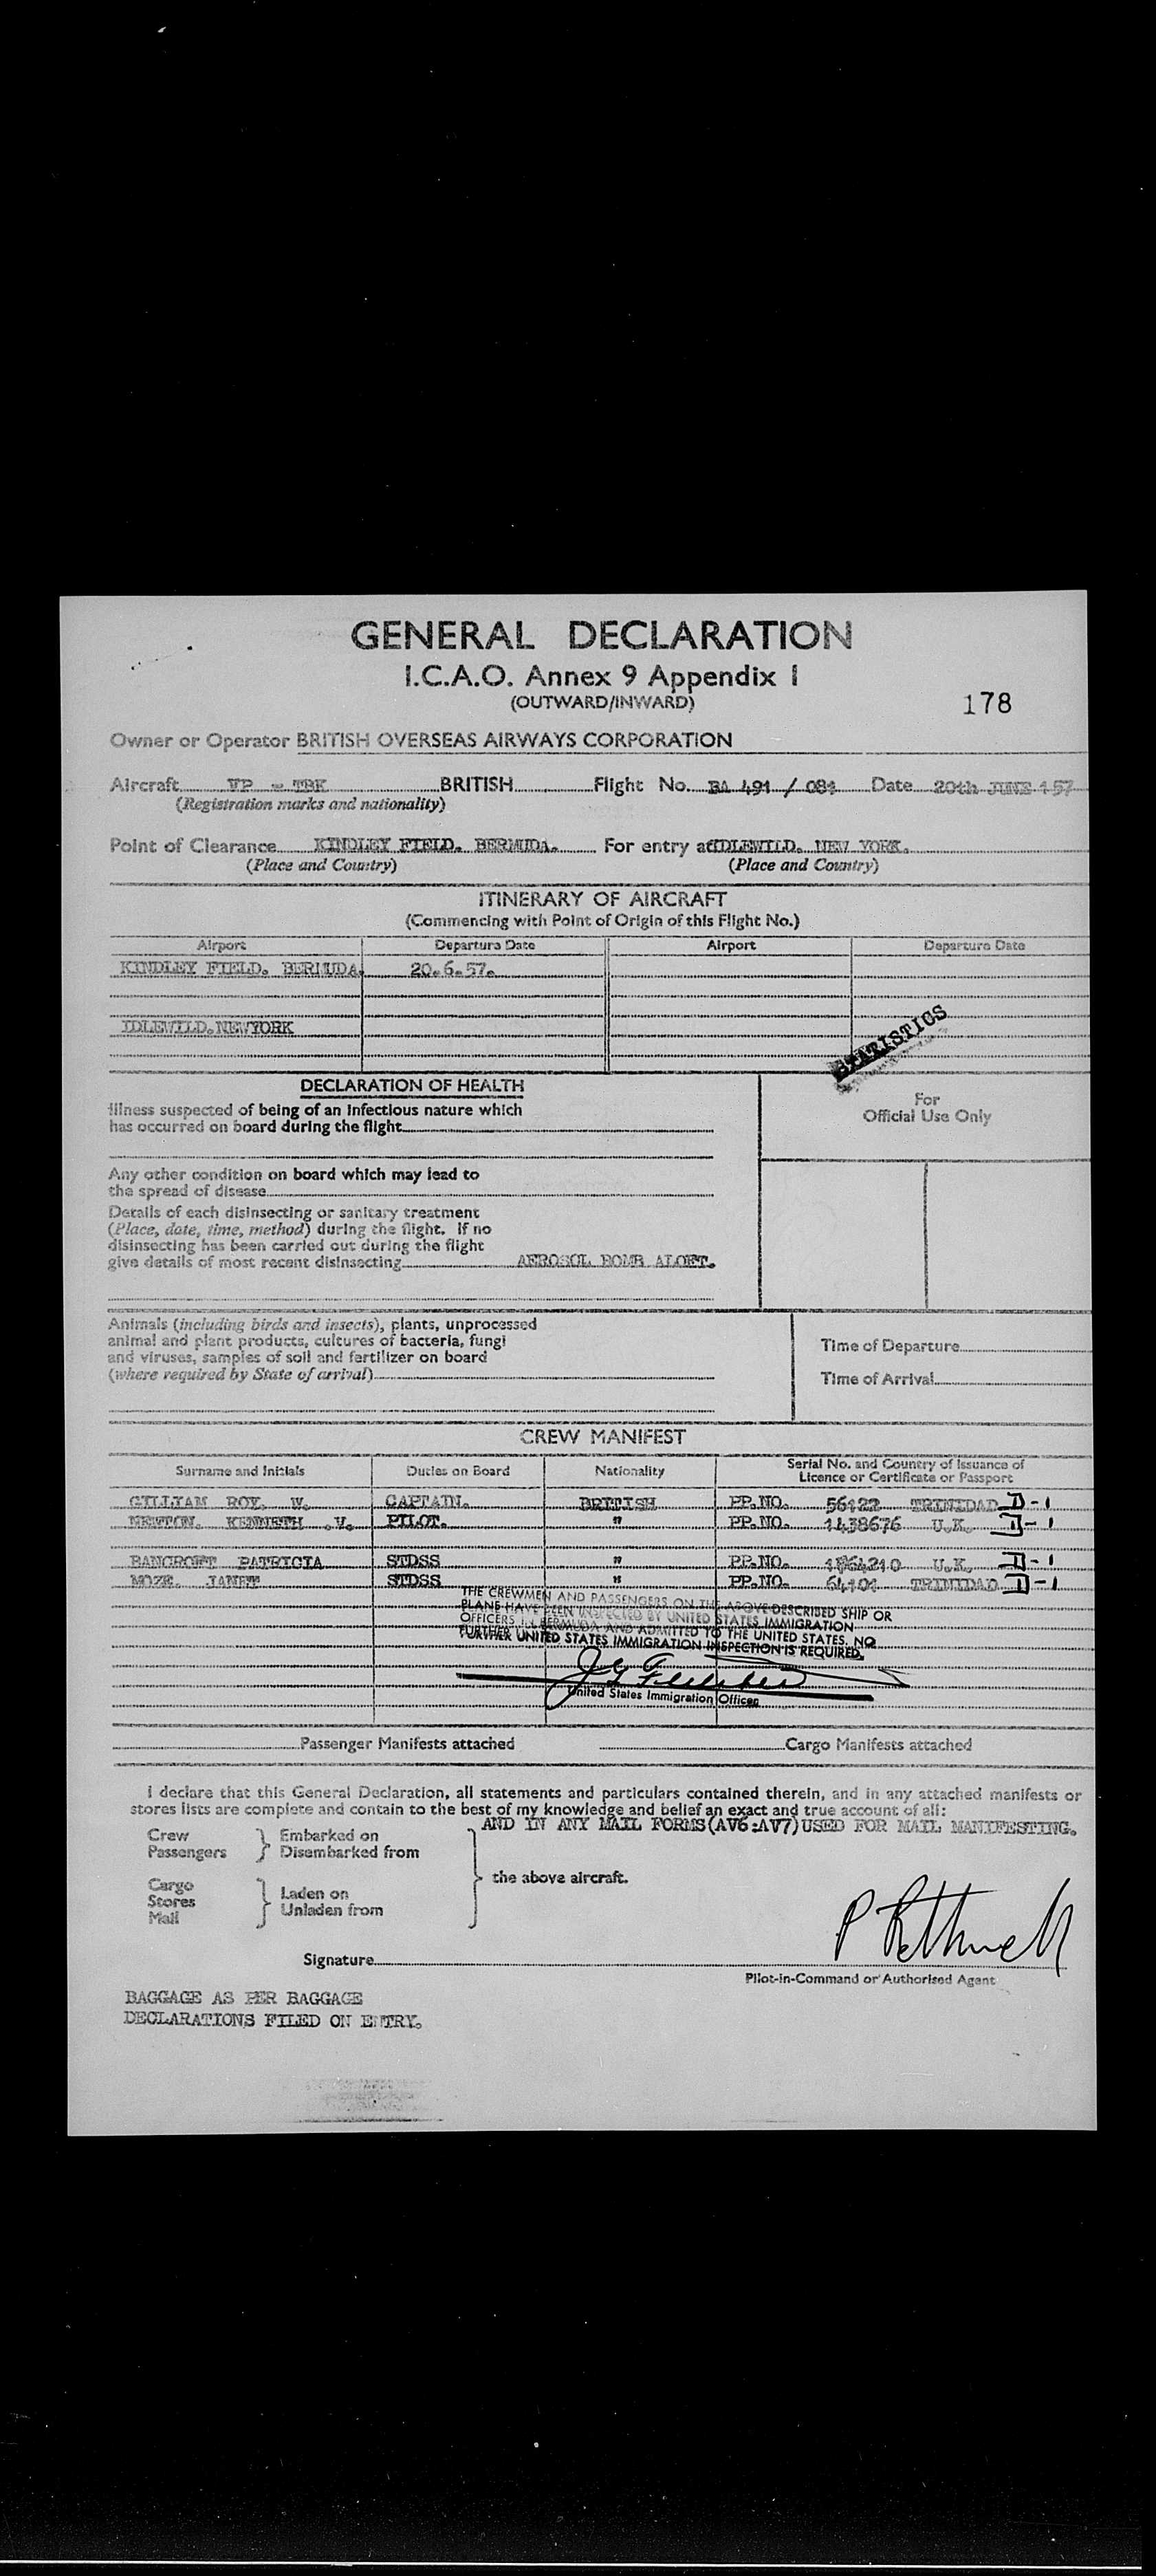 GENERAL DECLARATION
I.C.A.O. Annex 9 Appendix I
(OUTWARD/INWARD)
178
Owner or Operator BRITISH OVERSEAS AIRWAYS CORPORATION
Aircraft VP - TBK BRITISH Flight No. BA 491 / 081 Date 20th JUNE 157
(Registration marks and nationality)
Point of Clearance KINDLEY FIELD. BERMUDA. For entry at IDLEWILD. NEW YORK.
(Place and Country) (Place and Country)
ITINERARY OF AIRCRAFT
(Commencing with Point of Origin of this Flight No.)
Airport Departure Date Airport Departure Date
KINDLEY FIELD. BERMUDA. 20.6.57.
IDLEWILD.NEWYORK
STATISTICS
DECLARATION OF HEALTH
Illness suspected of being of an infectious nature which
has occurred on board during the flight
For
Official Use Only
Any other condition on board which may lead to
the spread of disease
Details of each disinsecting or sanitary treatment
(Place, date, time, method) during the flight. If no
disinsecting has been carried out during the flight
give details of most recent disinsecting AEROSOL BOMB ALOFT.
Animals (including birds and insects), plants, unprocessed
animal and plant products, cultures of bacteria, fungi
and viruses, samples of soil and fertilizer on board
(where required by State of arrival)
Time of Departure
Time of Arrival
CREW MANIFEST
Surname and Initials Duties on Board Nationality Serial No. and Country of Issuance of
Licence or Certificate or Passport
GILLIAM ROY. W. CAPTAIN. BRITISH PP.NO. 56122 TRINIDAD D-1
NEWTON. KENNETH .V. PILOT. " PP.NO. 1438676 U.K. D-1
BANCROFT PATRICIA STDSS " PP.NO. U.K. D-1
MOZE. JANET STDSS " PP.NO. 64101 TRINIDAD D-1
THE CREWMEN AND PASSENGERS ON THE ABOVE DESCRIBED SHIP OR
PLANE HAVE BEEN INSPECTED BY UNITED STATES IMMIGRATION
OFFICERS IN BERMUDA AND ADMITTED TO THE UNITED STATES. NO
FURTHER UNITED STATES IMMIGRATION INSPECTION IS REQUIRED.
United States Immigration Officer
Passenger Manifests attached Cargo Manifests attached
I declare that this General Declaration, all statements and particulars contained therein, and in any attached manifests or
stores lists are complete and contain to the best of my knowledge and belief an exact and true account of all:
AND IN ANY MAIL FORMS(AV6:AV7)USED FOR MAIL MANIFESTING.
Crew } Embarked on
Passengers } Disembarked from
the above aircraft.
Cargo
Stores } Laden on
Mail } Unladen from
Signature
Pilot-in-Command or Authorised Agent
BAGGAGE AS PER BAGGAGE
DECLARATIONS FILED ON ENTRY.